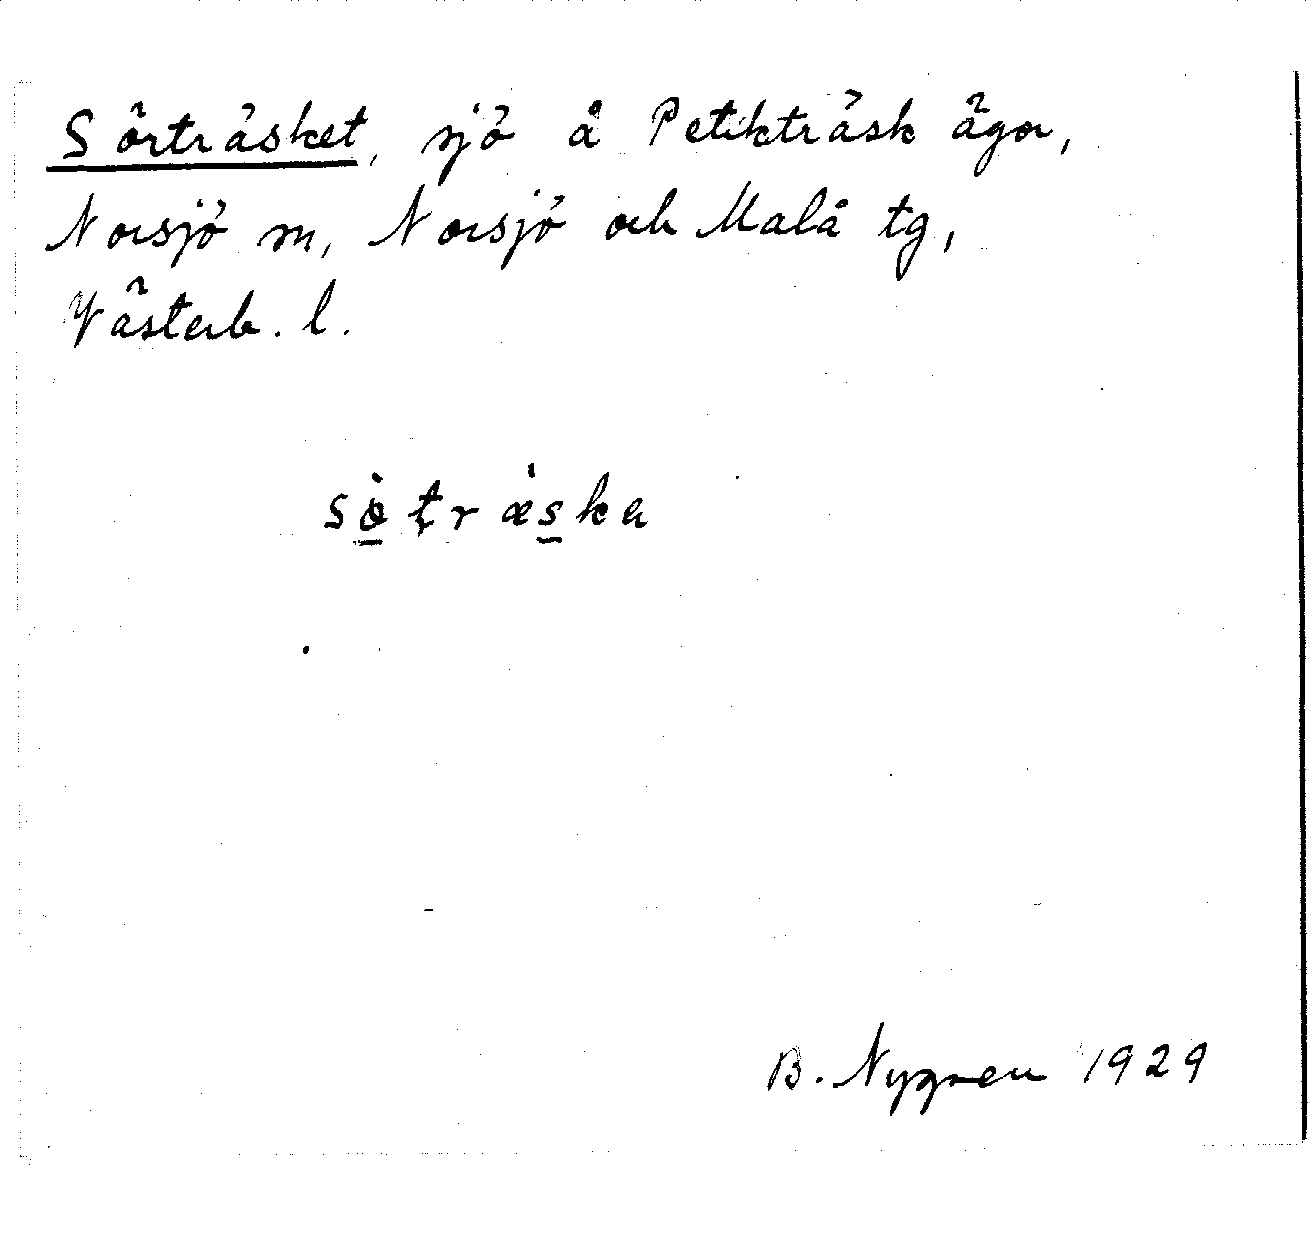 Sörträsket, sjö å Petikträsk ägor,
Norsjö m, Norsjö och Malå tg,
Västerb. l.
sö̀träska
B. Nygren 1929